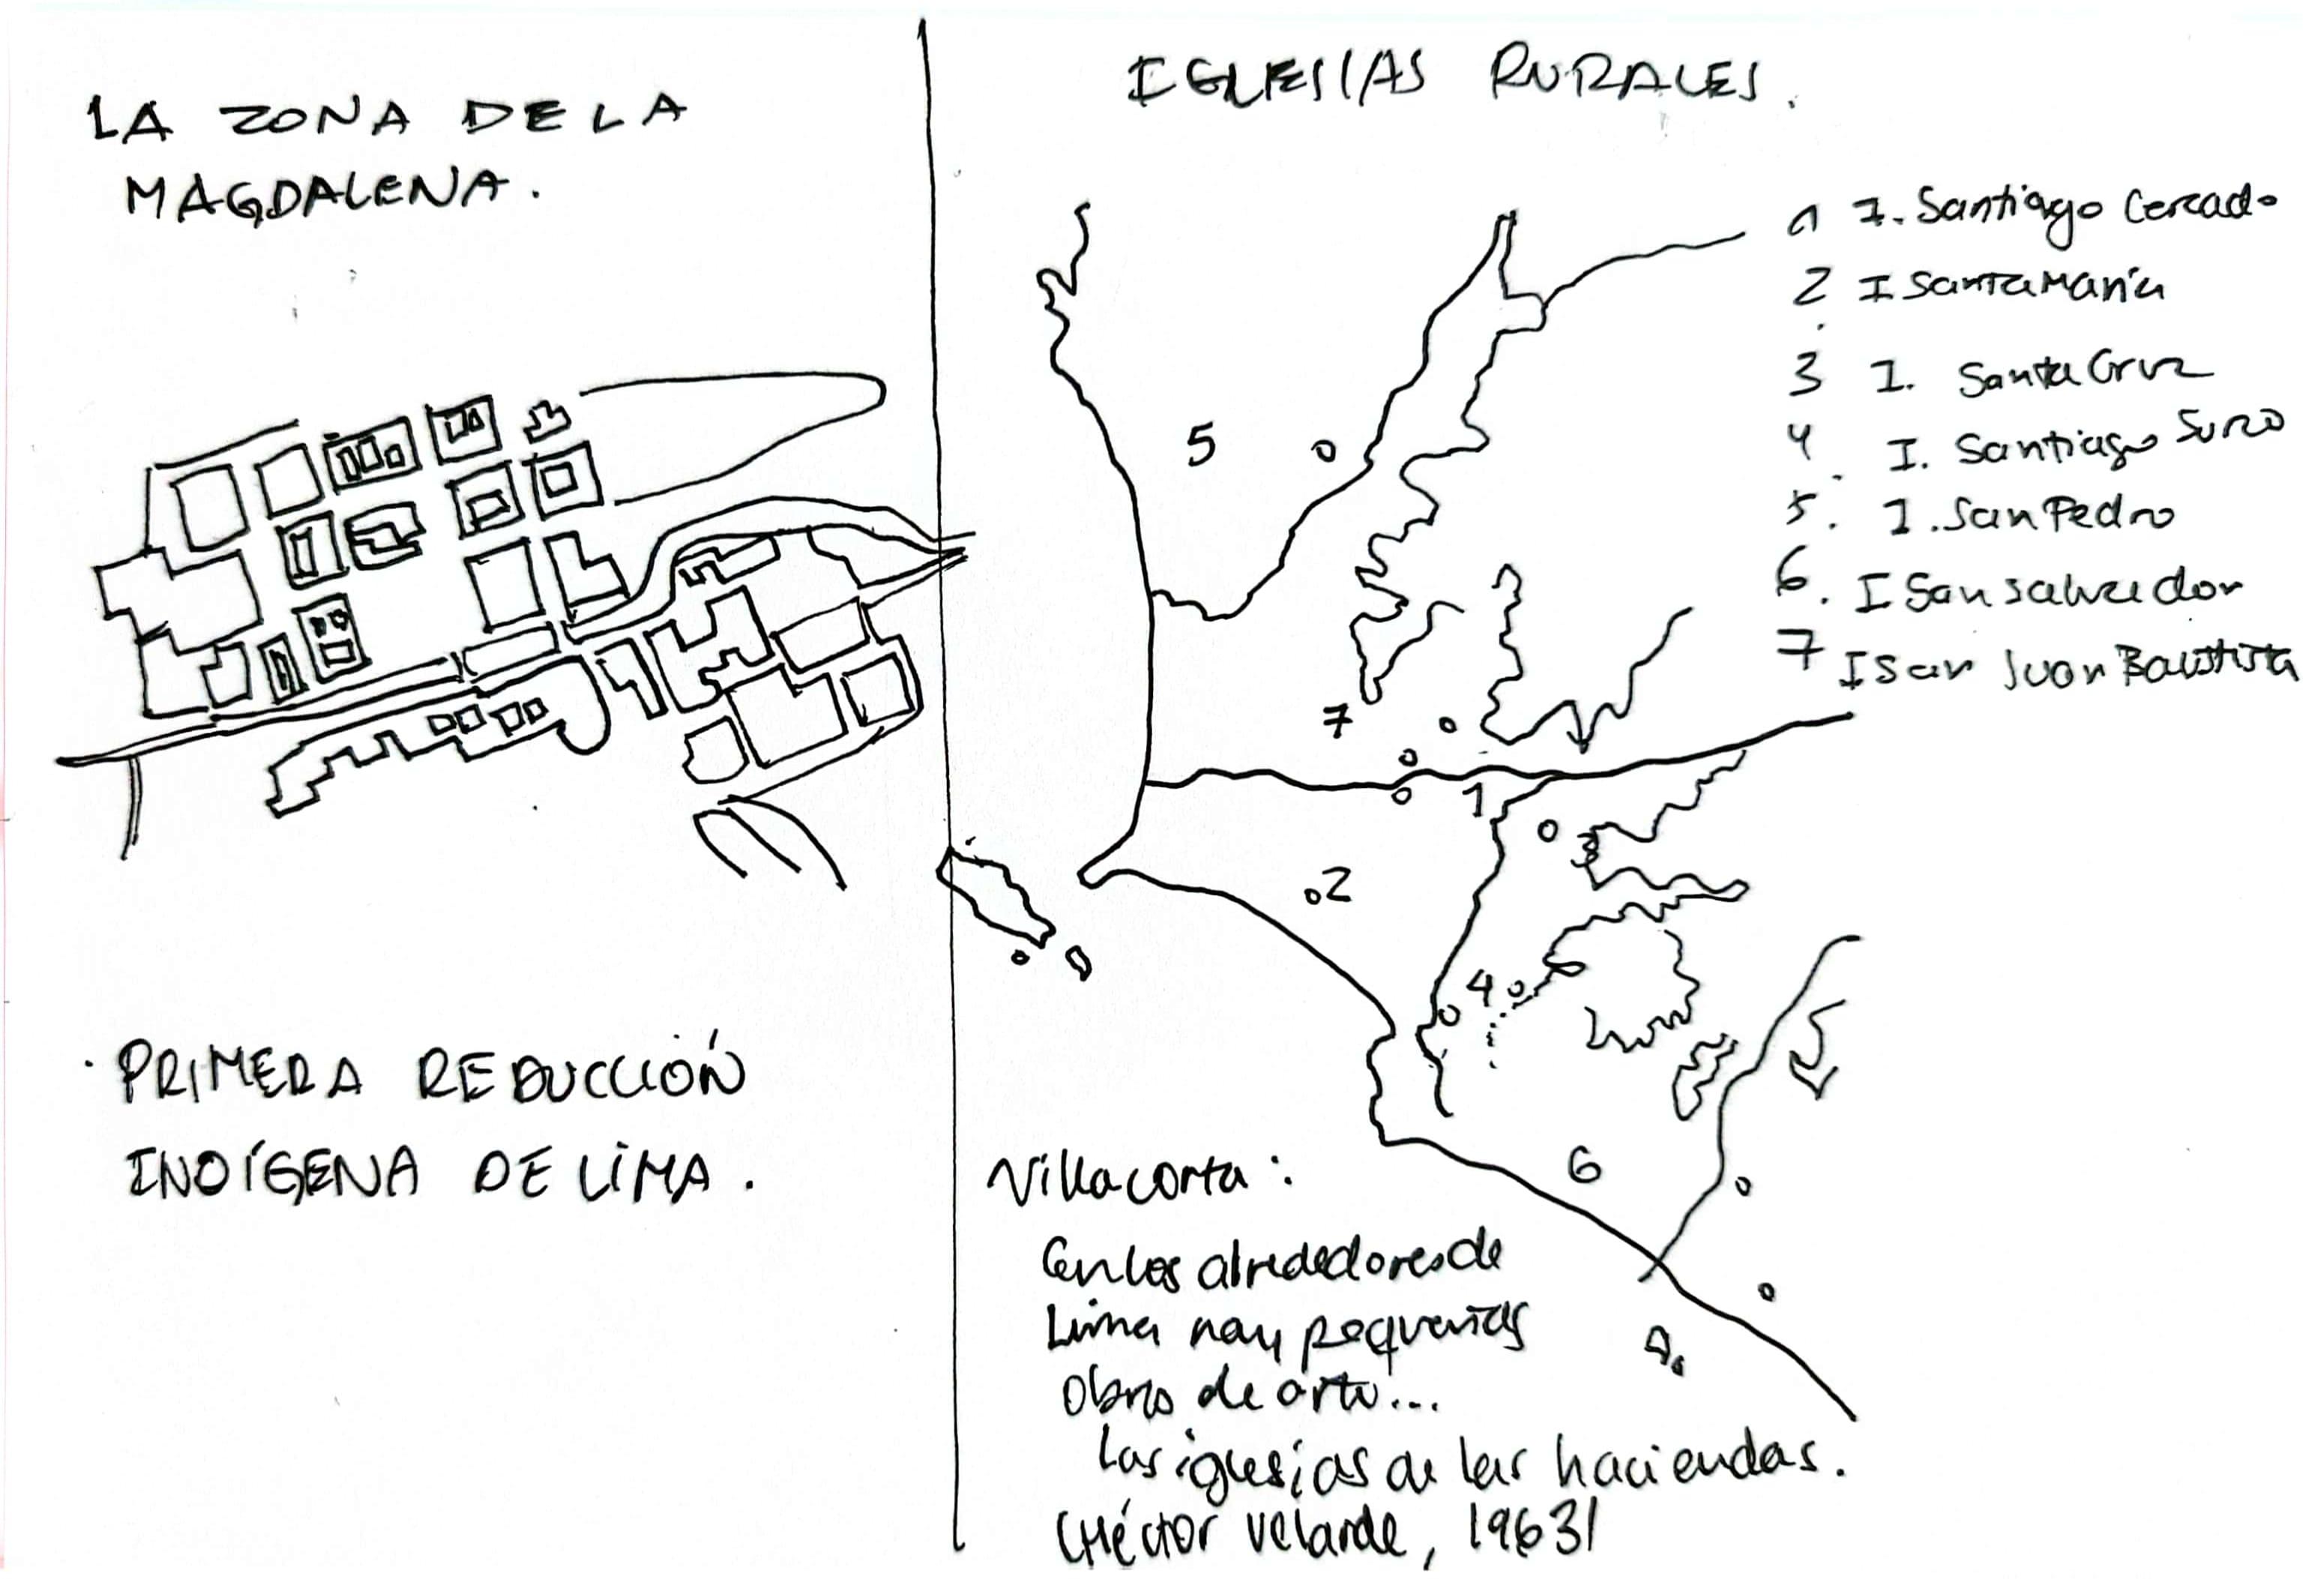 LA ZONA DE LA
MAGDALENA.
PRIMERA REDUCCIÓN
INDÍGENA DE LIMA.
IGLESIAS RURALES.
1 I. Santiago Cercado
2 I Santa María
3 I. Santa Cruz
4 I. Santiago Surco
5. I. San Pedro
6. I San Salvador
7 I San Juan Bautista
5
7
1
2
3
4
6
Villacorta:
En los alrededores de
Lima hay pequeñas
Obras de arte...
Las iglesias de las haciendas.
(Héctor Velarde, 1963)